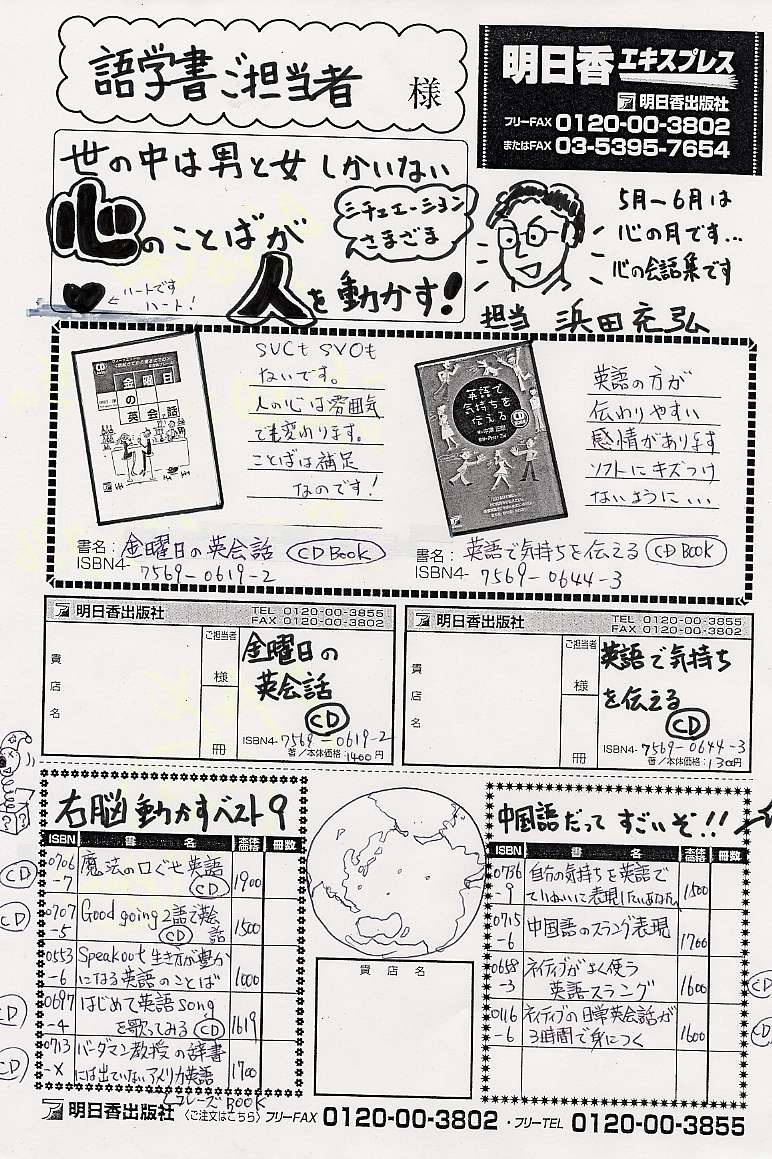 語学書ご担当者 様
明日香エキスプレス
明日香出版社
フリーFAX 0120-00-3802
またはFAX 03-5395-7654
世の中は男と女しかいない
心のことばが
シチュエーション
さまざま
人を動かす!
ハートです
ハート!
5月〜6月は
心の月です…
心の会話集です
担当 浜田充弘
金曜日
の
英会話
SVCも SVOも
ないです。
人の心は雰囲気
でも変わります。
ことばは補足
なのです!
書名: 金曜日の英会話 CD Book
ISBN4-7569-0619-2
英語で
気持ちを
伝える
英語の方が
伝わりやすい
感情があります
ソフトにキズつけ
ないように…
書名: 英語で気持ちを伝える CD Book
ISBN4-7569-0644-3
明日香出版社 TEL 0120-00-3855
FAX 0120-00-3802
貴店名
ご担当者
様
冊
金曜日の
英会話
CD
ISBN4-7569-0619-2
著/本体価格: 1400円
明日香出版社 TEL 0120-00-3855
FAX 0120-00-3802
貴店名
ご担当者
様
冊
英語で気持ち
を伝える
CD
ISBN4-7569-0644-3
著/本体価格: 1300円
右脳動かすベスト9
ISBN 書名 本体価格 冊数
CD 0706-7 魔法の口ぐせ英語 CD 1900
CD 0707-5 Good going 2語で英会話 CD 1500
0553-6 Speakout 生き方が豊かになる英語のことば 1000
CD 0697-4 はじめて英語songを歌ってみる CD 1619
CD 0713-X バーダマン教授の辞書には出ていないアメリカ英語 1700
貴店名
中国語だって すごいぞ!!
ISBN 書名 本体価格 冊数
0736-9 自分の気持ちを英語でていねいに表現したいあなたに 1500
0715-6 中国語のスラング表現 1700
0658-3 ネイティブがよく使う英語スラング 1600 CD
0116-6 ネイティブの日常英会話が3時間で身につく 1600 CD
フレーズBOOK
明日香出版社 〈ご注文はこちら〉 フリーFAX 0120-00-3802 ・フリーTEL 0120-00-3855